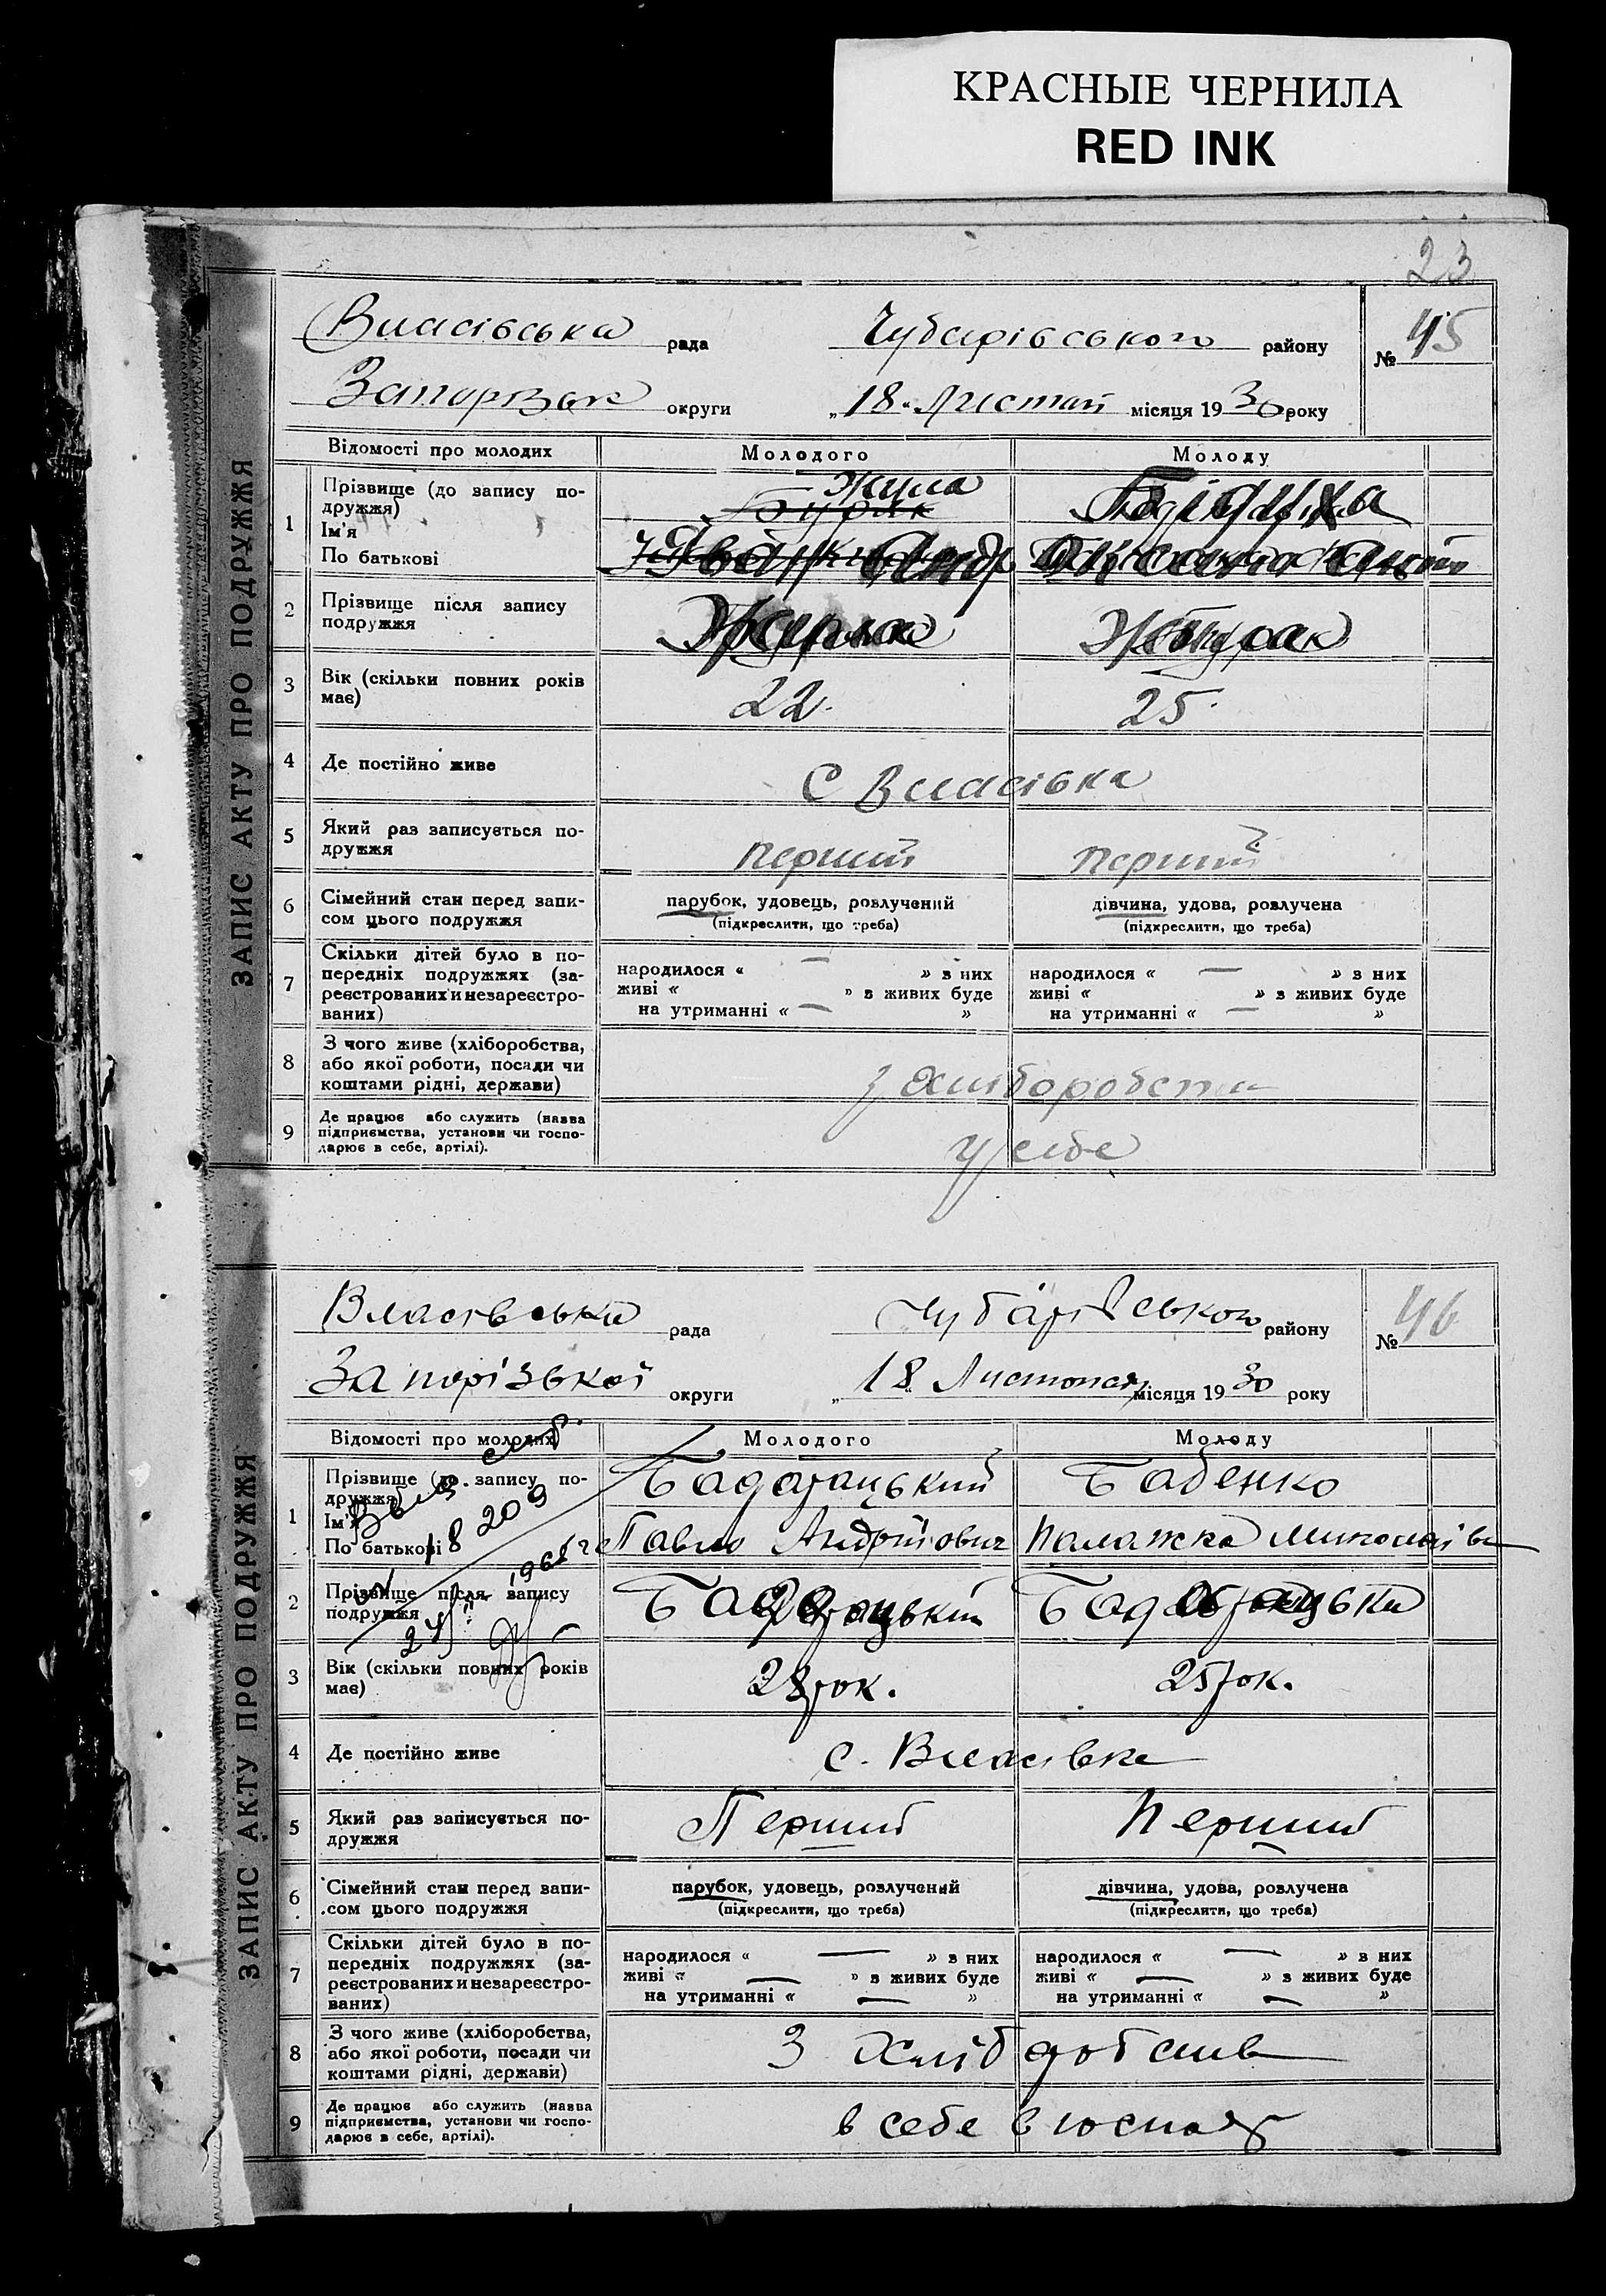 КРАСНЫЕ ЧЕРНИЛА
RED INK
23
ЗАПИС АКТУ ПРО ПОДРУЖЖЯ
Власівська рада Чубарівського району № 45
округи „18“ місяця 1930 року
Відомості про молодих Молодого Молоду
1 Прізвище (до запису по-
дружжя)
Ім'я
По батькові
2 Прізвище після запису
подружжя
3 Вік (скільки повних років
має) 22. 25.
4 Де постійно живе С Власівка
5 Який раз записується по-
дружжя перший перший
6 Сімейний стан перед запи-
сом цього подружжя
парубок, удовець, розлучений дівчина, удова, розлучена
(підкреслити, що треба) (підкреслити, що треба)
7 Скільки дітей було в по-
передніх подружжях (за-
реєстрованих и незареєстро-
ваних)
народилося « — » з них народилося « — » з них
живі « » з живих буде живі « » з живих буде
на утриманні « — » на утриманні « — »
8 З чого живе (хліборобства,
або якої роботи, посади чи
коштами рідні, держави)
з
9 Де працює або служить (назва
підприємства, установи чи госпо-
дарює в себе, артілі).
у себе
ЗАПИС АКТУ ПРО ПОДРУЖЖЯ
Власівська рада Чубарівського району № 46
Запорізької округи „18“ Листопад місяця 1930 року
Відомості про молодих Молодого Молоду
1 Прізвище (до запису по-
дружжя) Бабенко
Ім'я
По батькові Павло Андрійович Палажка
2 Прізвище після запису
подружжя
3 Вік (скільки повних років
має) 28 рок. 25 рок.
4 Де постійно живе с. Власівка
5 Який раз записується по-
дружжя Перший Перший
6 Сімейний стан перед запи-
сом цього подружжя
парубок, удовець, розлучений дівчина, удова, розлучена
(підкреслити, що треба) (підкреслити, що треба)
7 Скільки дітей було в по-
передніх подружжях (за-
реєстрованих и незареєстро-
ваних)
народилося « — » з них народилося « — » з них
живі « — » з живих буде живі « — » з живих буде
на утриманні « — » на утриманні « — »
8 З чого живе (хліборобства,
або якої роботи, посади чи
коштами рідні, держави)
З
9 Де працює або служить (назва
підприємства, установи чи госпо-
дарює в себе, артілі).
в себе в